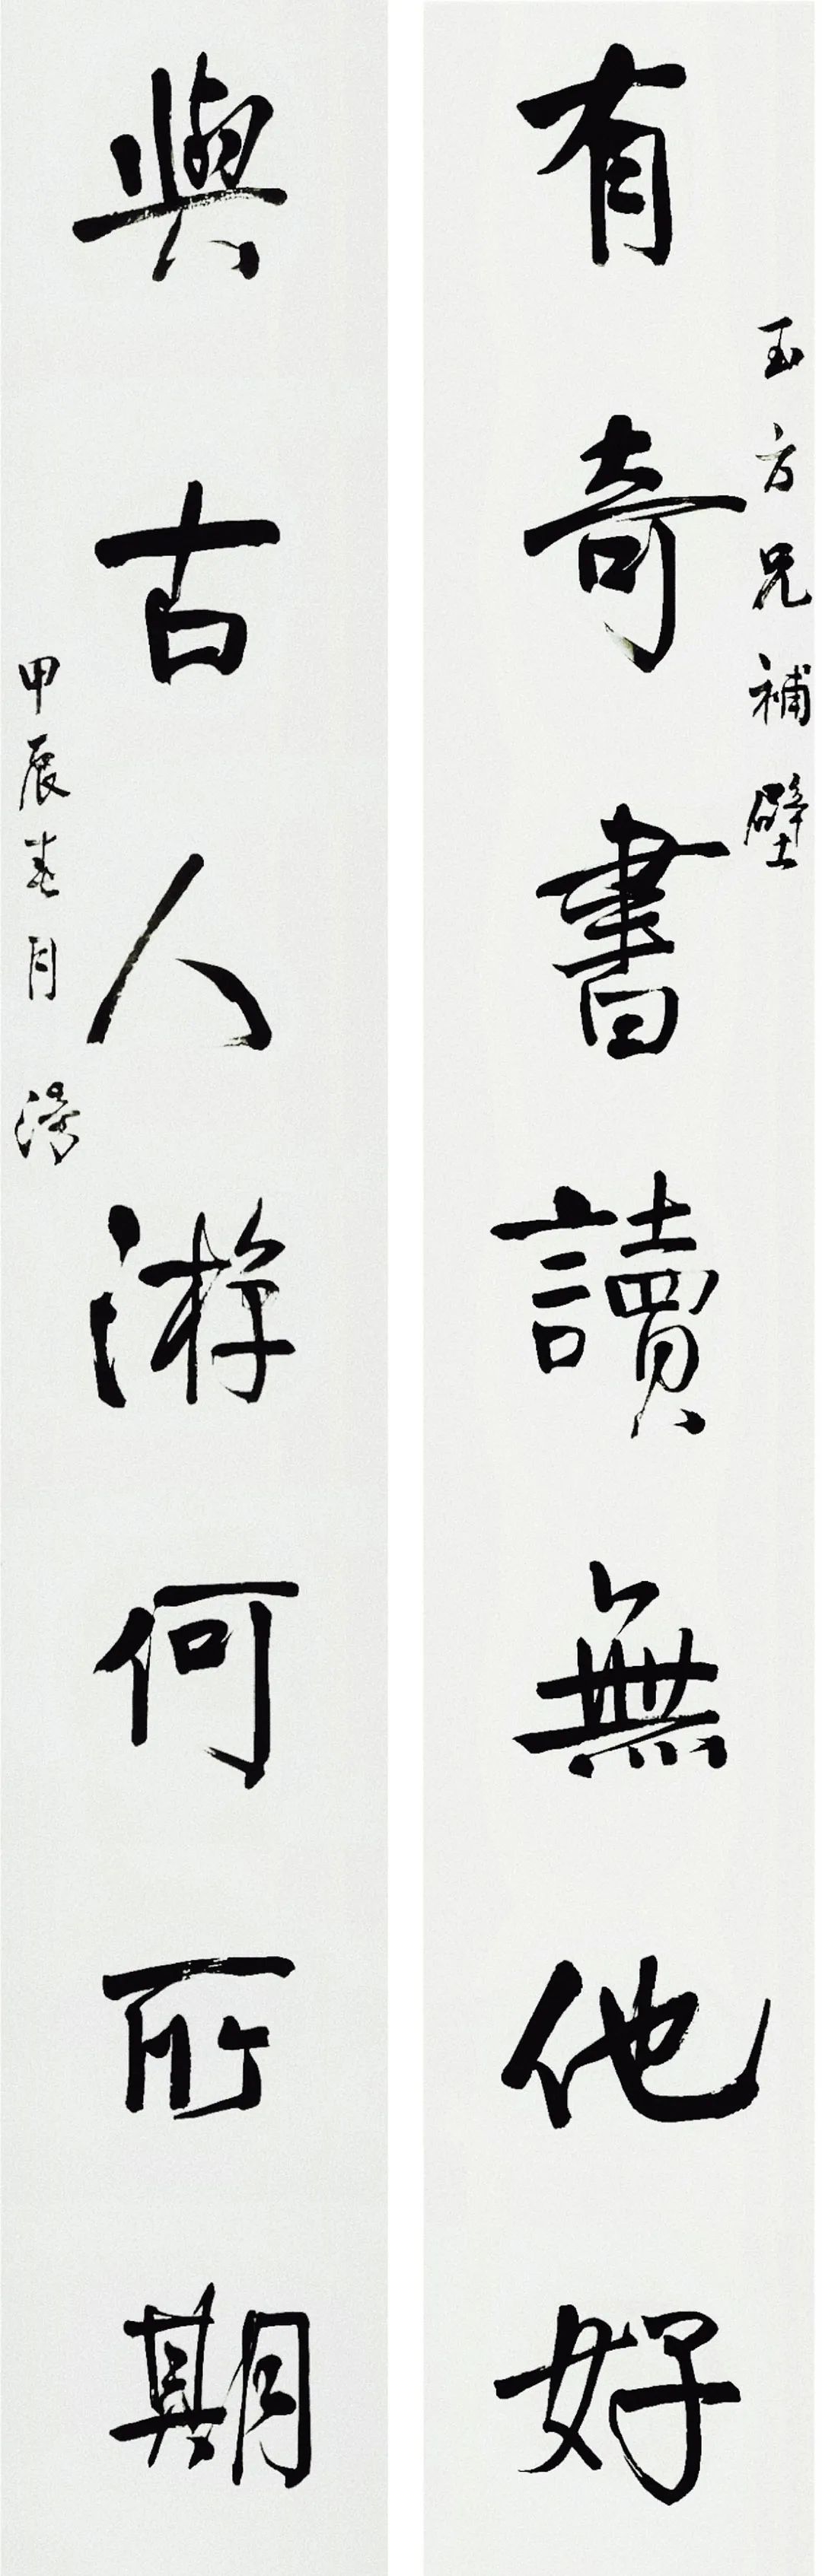 玉方兄補壁
有奇書讀無他好
與古人游何所期
甲辰春月